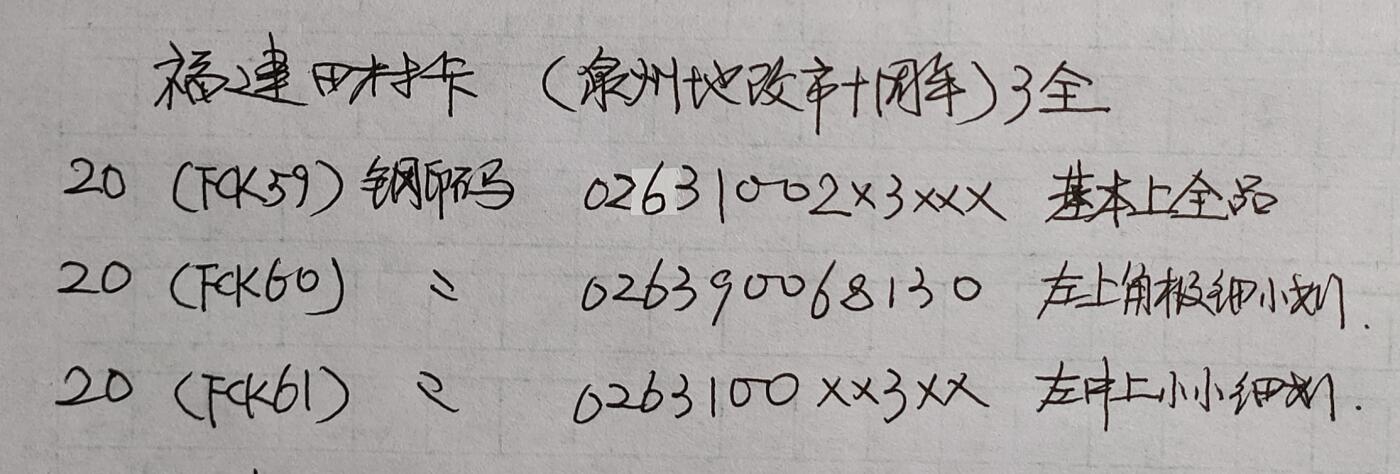 福建田村卡 (泉州地改市十周年) 3全
20 (FCK59) 钢印码 02631002××3××× 基本上全品
20 (FCK60) 〃 026390068130 左上角极细小划.
20 (FCK61) 〃 0263100××3×× 左中上小小细划.